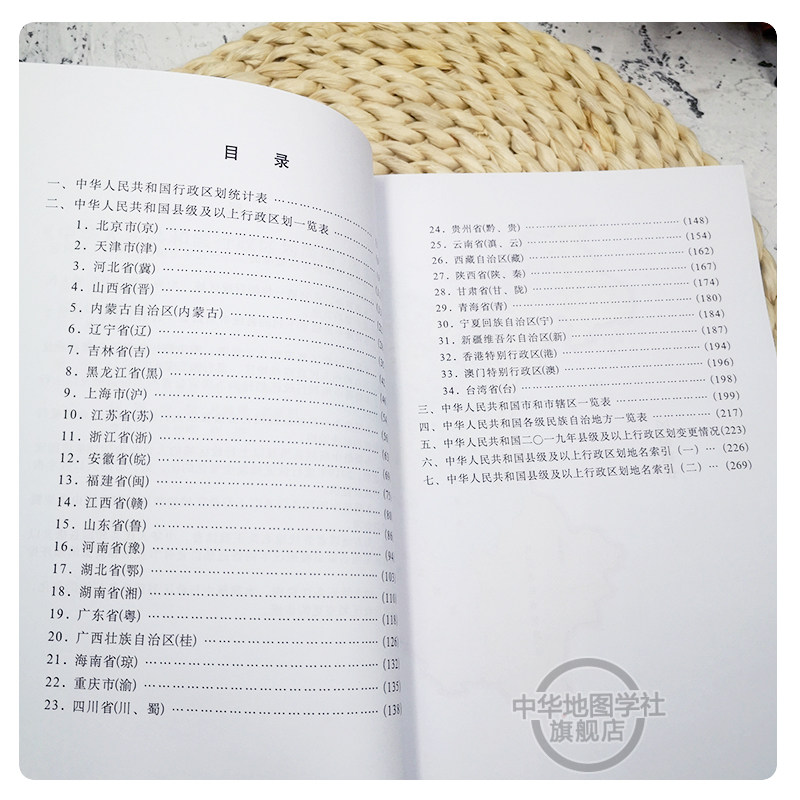 目 录
一、中华人民共和国行政区划统计表
二、中华人民共和国县级及以上行政区划一览表
1．北京市(京)
2．天津市(津)
3．河北省(冀)
4．山西省(晋)
5．内蒙古自治区(内蒙古)
6．辽宁省(辽)
7．吉林省(吉)
8．黑龙江省(黑)
9．上海市(沪)
10．江苏省(苏)
11．浙江省(浙)
12．安徽省(皖)
13．福建省(闽)
14．江西省(赣)
15．山东省(鲁)
16．河南省(豫)
17．湖北省(鄂) (103)
18．湖南省(湘) (110)
19．广东省(粤) (118)
20．广西壮族自治区(桂) (126)
21．海南省(琼) (132)
22．重庆市(渝) (135)
23．四川省(川、蜀) (138)
24．贵州省(黔、贵) (148)
25．云南省(滇、云) (154)
26．西藏自治区(藏) (162)
27．陕西省(陕、秦) (167)
28．甘肃省(甘、陇) (174)
29．青海省(青) (180)
30．宁夏回族自治区(宁) (184)
31．新疆维吾尔自治区(新) (187)
32．香港特别行政区(港) (194)
33．澳门特别行政区(澳) (196)
34．台湾省(台) (198)
三、中华人民共和国市和市辖区一览表 (199)
四、中华人民共和国各级民族自治地方一览表 (217)
五、中华人民共和国二〇一九年县级及以上行政区划变更情况(223)
六、中华人民共和国县级及以上行政区划地名索引（一） (226)
七、中华人民共和国县级及以上行政区划地名索引（二） (269)
中华地图学社
旗舰店